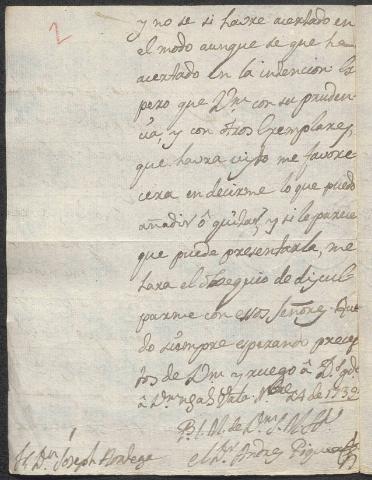 2
y no se si havre acertado en
el modo aunque se que he
acertado en la intencion Es
pero que Vm con su pruden
cia, y con otros Exemplares,
que havra visto me favore
cera en decirme lo que puedo
añadir ô quitar, y si le parece
que puede presentarla, me
hara el obsequio de discul
parme con essos Señores que
do siempre esperando precep
tos de Vm y ruego â Ds gde
â Vm ms as 24 de 1732
B. l. M. de Vm
el Dr Andres Piquer
Sr Dn Joseph